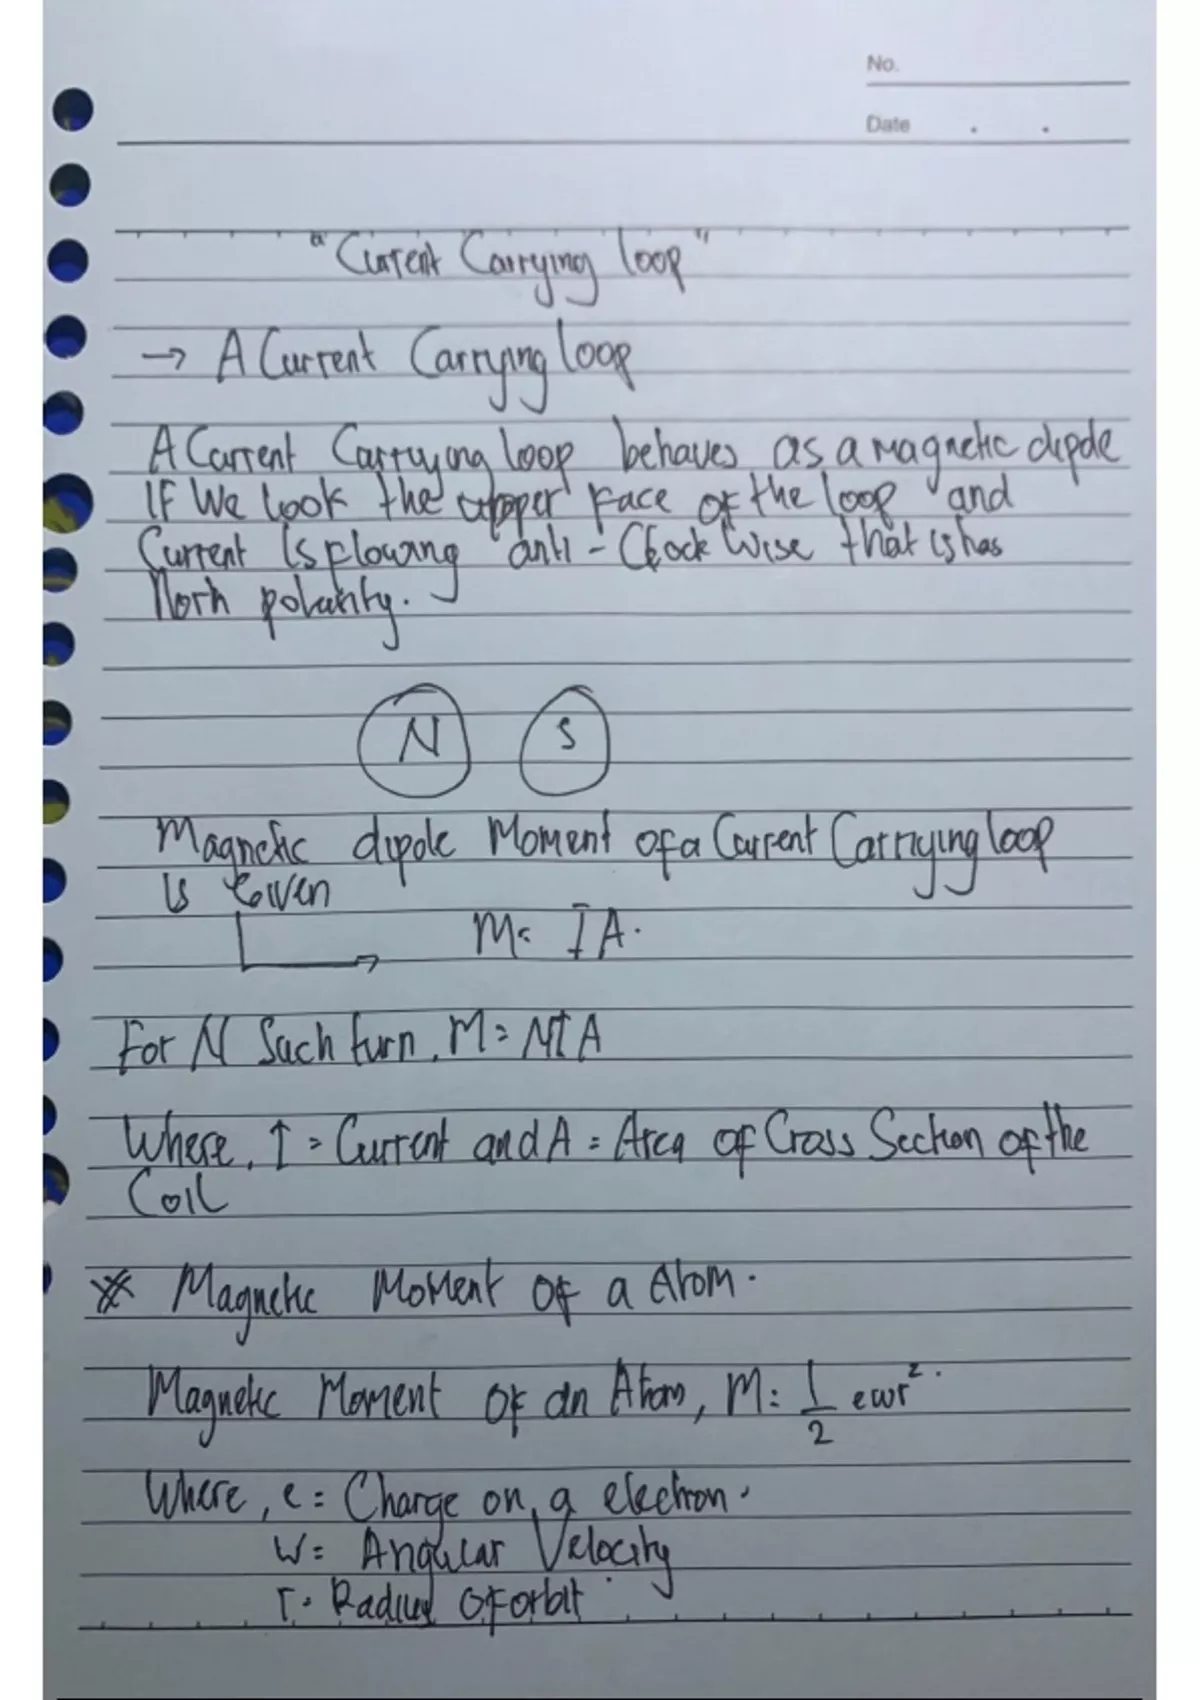 No.
Date . .
"Current Carrying loop"
→ A Current Carrying loop
A Current Carrying loop behaves as a magnetic dipole
If We look the upper face of the loop and
Current is flowing anti-Clock Wise that is has
North polarity.
N S
Magnetic dipole Moment of a Current Carrying loop
is Given
M = IA.
For N Such turn, M = NIA
Where, I = Current and A = Area of Cross Section of the
Coil
* Magnetic Moment of a Atom.
Magnetic Moment of an Atom, M = 1/2 ewr².
Where, e = Charge on a electron.
w = Angular Velocity
r = Radius of orbit